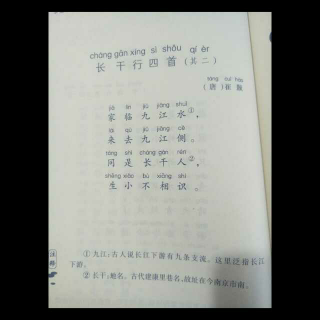 cháng gān xíng sì shǒu qí èr
长干行四首(其二)
táng cuī hào
(唐)崔颢
jiā lín jiǔ jiāng shuǐ
家临九江水①,
lái qù jiǔ jiāng cè
来去九江侧。
tóng shì cháng gān rén
同是长干人②,
shēng xiǎo bù xiāng shí
生小不相识。
注释
①九江:古人说长江下游有九条支流。这里泛指长江
下游。
②长干:地名。古代建康里巷名,故址在今南京市南。